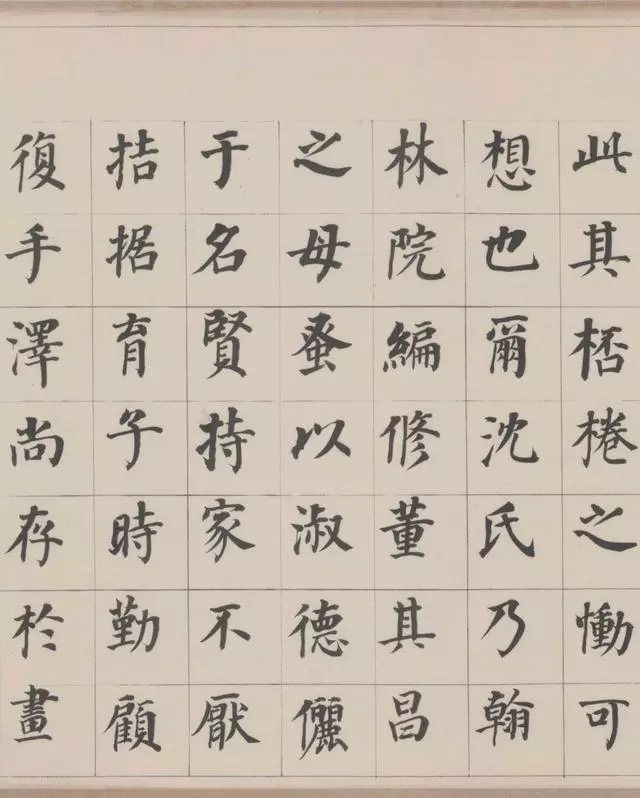 此其桮棬之慟可
想也爾沈氏乃翰
林院編修董其昌
之母蚤以淑德儷
于名賢持家不厭
拮据育子時勤顧
復手澤尚存於畫